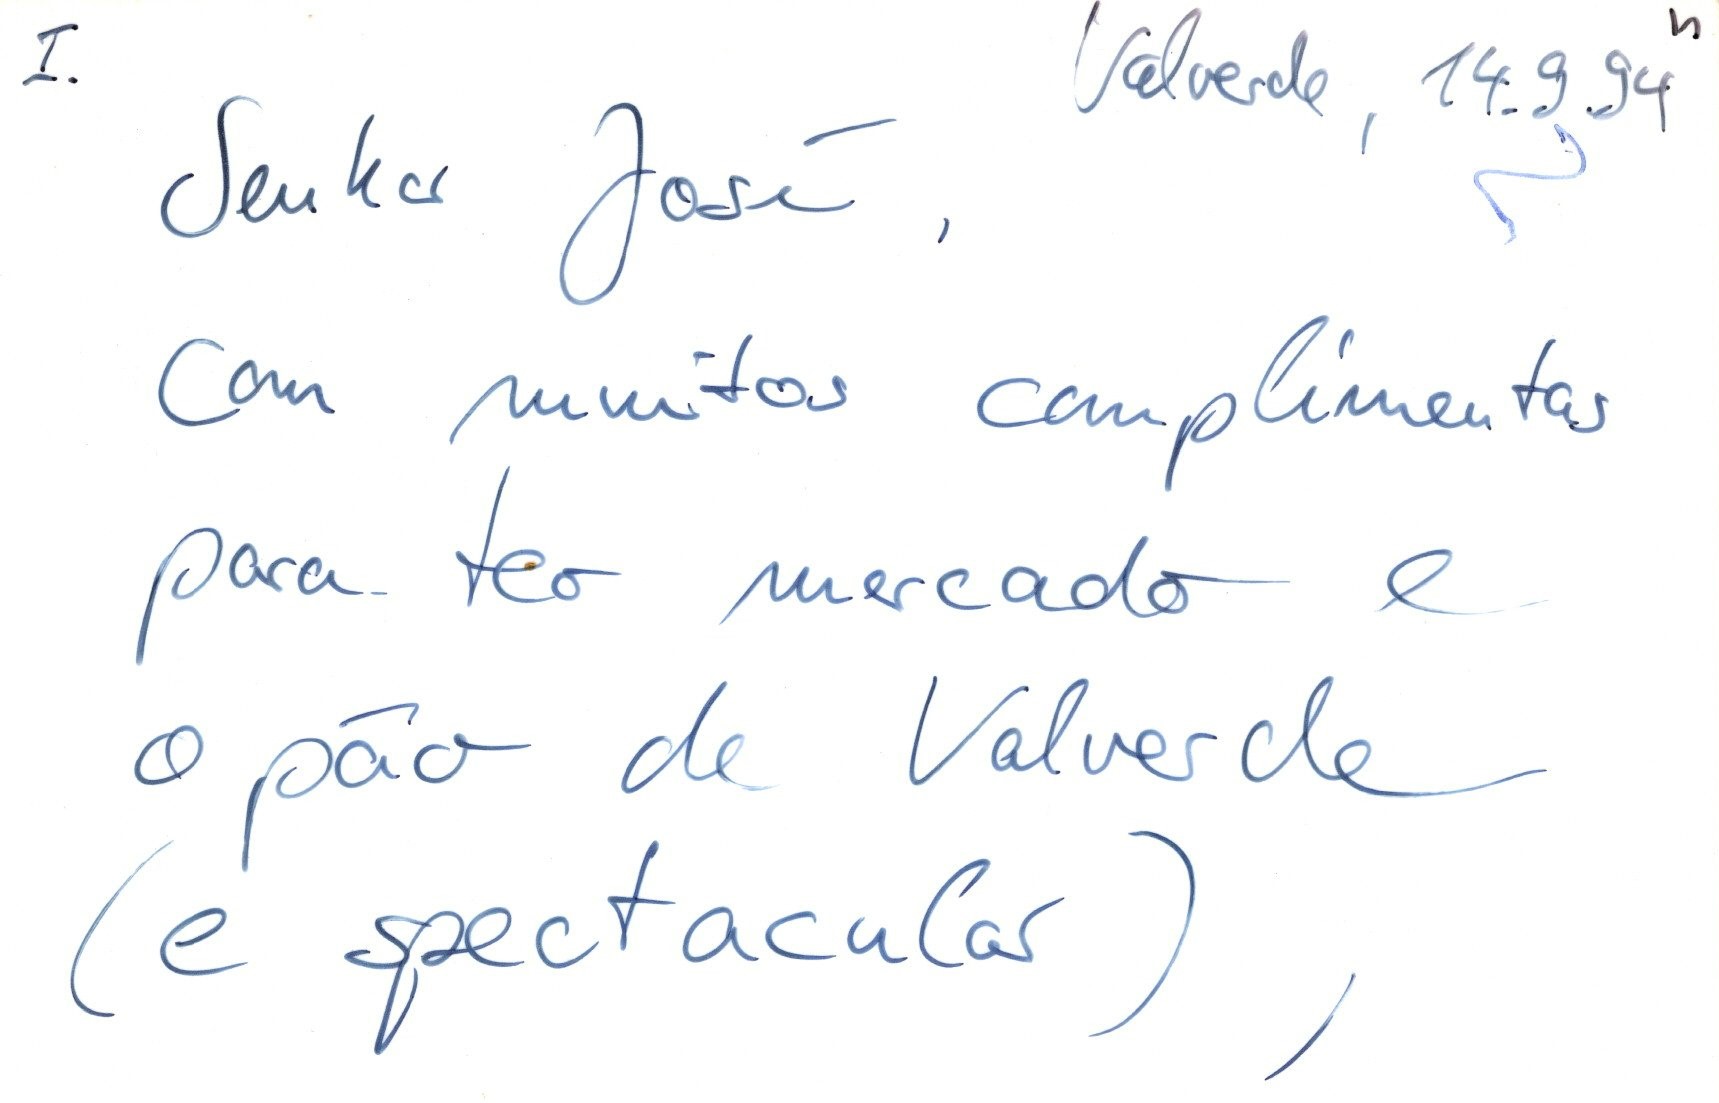 I.
Valverde, 14.9.94
Senhor José,
Com muitos complimentos
para teo mercado e
o pão de Valverde
(e spectacular),